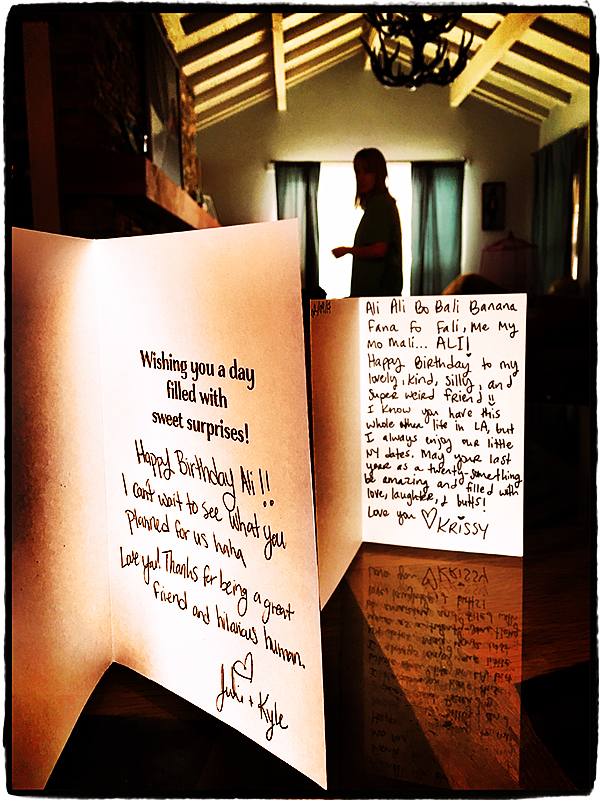 Wishing you a day
filled with
sweet surprises!
Happy Birthday Ali!!
I can't wait to see what you
planned for us haha
Love you! Thanks for being a great
friend and hilarious human.
Juli + Kyle
Ali Ali Bo Bali Banana
Fana Fo Fali, Me My
Mo Mali... ALI!
Happy Birthday to my
lovely, kind, silly, and
super weird friend!!
I know you have this
whole other life in LA, but
I always enjoy our little
NY dates. May your last
year as a twenty-something
be amazing and filled with
love, laughter, & butts!
Love you ♡ KRISSY